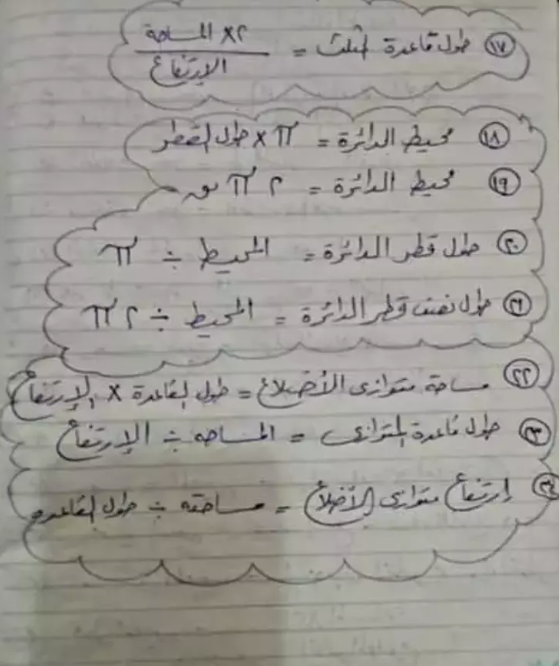 ١٧ طول قاعدة المثلث = ٢ × المساحة / الإرتفاع
١٨ محيط الدائرة = π × طول القطر
١٩ محيط الدائرة = ٢ π نق
٢٠ طول قطر الدائرة = المحيط ÷ π
٢١ طول نصف قطر الدائرة = المحيط ÷ ٢ π
٢٢ مساحة متوازى الأضلاع = طول القاعدة × الإرتفاع
٢٣ طول قاعدة المتوازى = المساحه ÷ الإرتفاع
٢٤ إرتفاع متوازى الأضلاع = مساحته ÷ طول القاعده